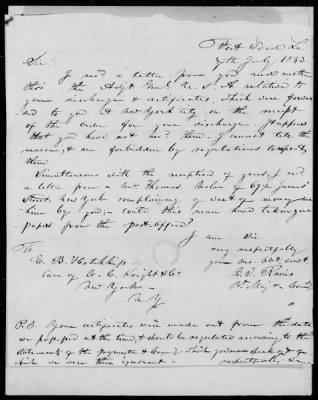 Fort Wood La
7th July 1843.
Sir
I rec'd a letter from you and another
thro' the Adjt Genl U. S. A relative to
your discharge & certificates, which were forwar
ded to you at New York City on the receipt
of the order for your discharge. It appears
that you have not rec'd them. I cannot tell the
reason, & am forbidden by regulations to
them
Simultaneous with the reception of yours, I rec'd
a letter from a Mr. Thomas of 67 James
Street, New York complaining of want of money due
him by you - could this man have taken your
papers from the post-office?
I am Sir
very respectfully
your mo. obt. svt
G. J. Rains
Bt. Maj &
To
E. B. Hotchkiss
Care of C. C. Wright & Co
New York
N. Y
P.S. Your certificates were made out from the data
we possessed at the time, & should be regulated according to the
statements of the paymaster & which you speak of
which we were then ignorant - respectfully